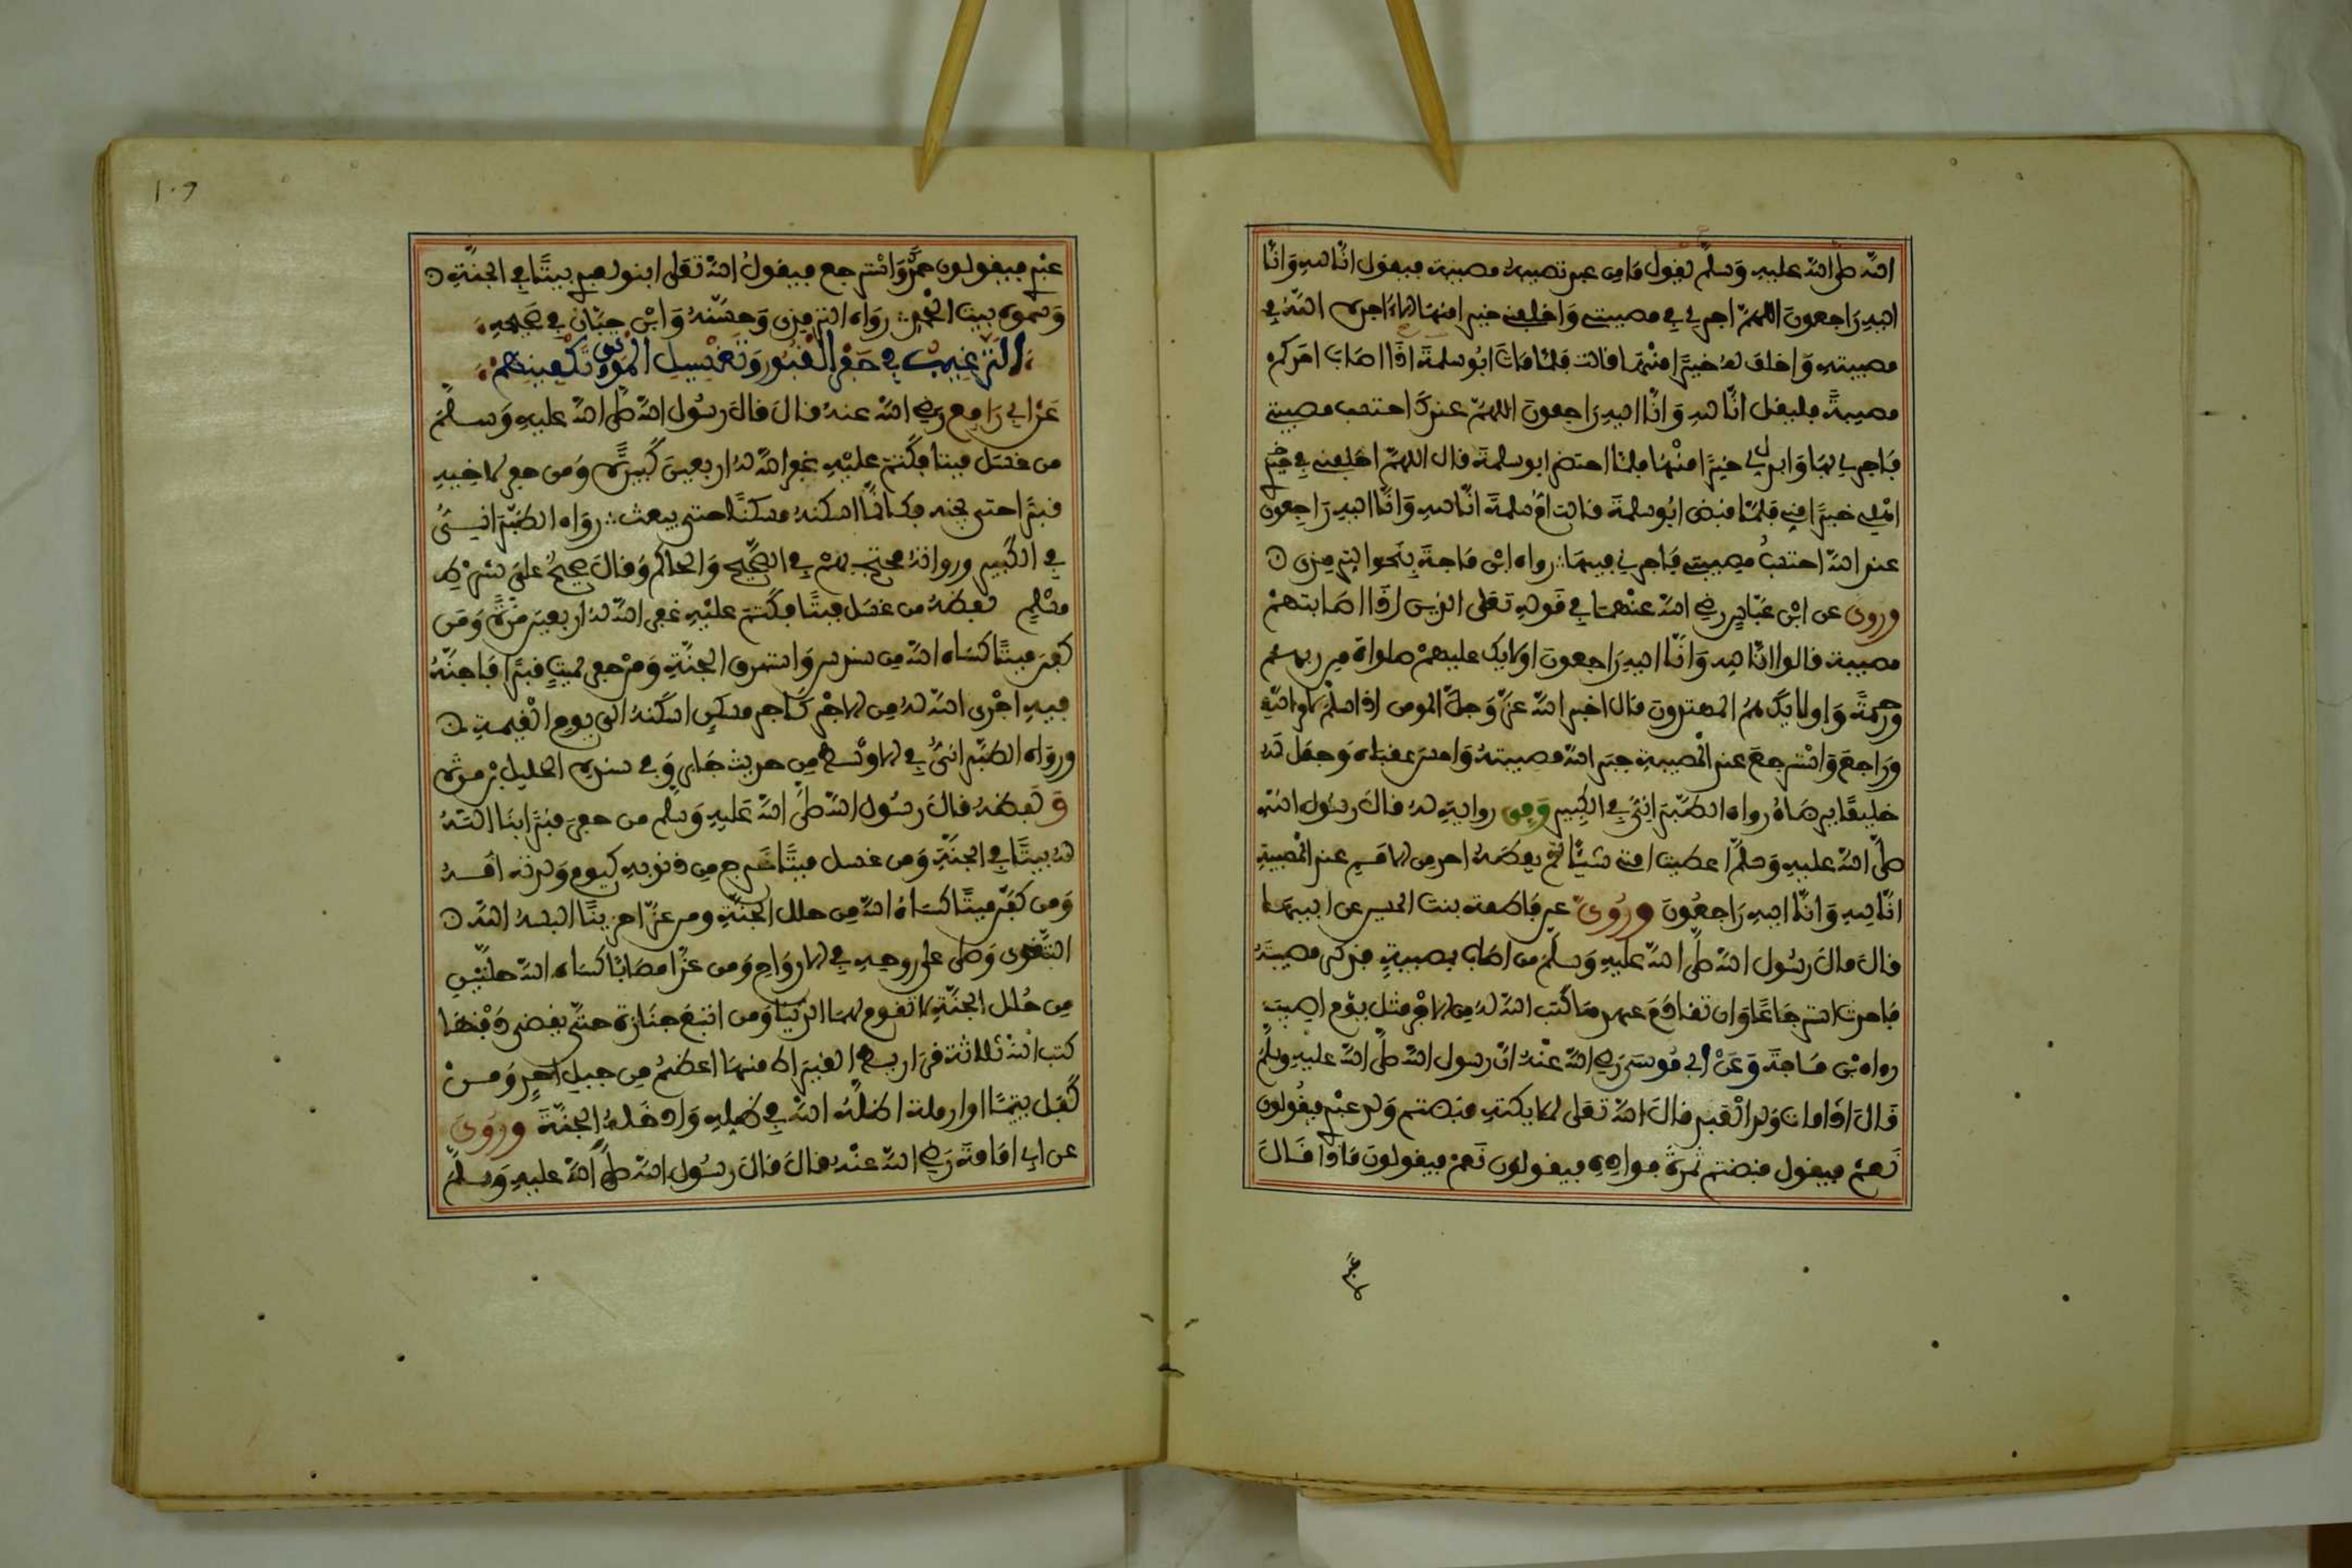 الله صلى الله عليه وسلم يقول ما من عبد تصيبه مصيبة فيقول انا لله وانا
اليه راجعون اللهم اجرني في مصيبتي واخلف لي خيرا منها الا اجره الله في
مصيبته واخلف له خيرا منها قالت فلما مات ابو سلمة اذا اصاب احدكم
مصيبة فليقل انا لله وانا اليه راجعون اللهم عندك احتسب مصيبتي
فاجرني بها وابدلني خيرا منها فلما احتضر ابو سلمة قال اللهم اخلفني في
اهلي خيرا مني فلما قبض ابو سلمة قالت ام سلمة انا لله وانا اليه راجعون
عند الله احتسب مصيبتي فاجرني فيها رواه ابن ماجة بنحو الترمذي
وروي عن ابن عباس رضي الله عنهما في قوله تعلى الذين اذا اصابتهم
مصيبة قالوا انا لله وانا اليه راجعون اولايك عليهم صلوات من ربهم
ورحمة واولايك هم المهتدون قال اخبر الله عز وجل ان المومن اذا سلم لامر الله
وراجع واسترجع عند المصيبة جبر الله مصيبته واحسن عقباه وجعل له
خليفا يرضاه رواه الطبراني في الكبير وفي رواية له قال رسول الله
صلى الله عليه وسلم اعطيت امتي شيئا لم يعطه احد من الامم عند المصيبة
انا لله وانا اليه راجعون وروي عن فاطمة بنت الحسين عن ابيها
قال قال رسول الله صلى الله عليه وسلم من اصاب بمصيبة فذكر مصيبته
فاحدث استرجاعا وان تقادم عهدها كتب الله له من الاجر مثل يوم اصيب
رواه بن ماجة وعن ابي موسى رضي الله عنه ان رسول الله صلى الله عليه وسلم
قال اذا مات ولد العبد قال الله تعلى لملايكته قبضتم ولد عبدي فيقولون
نعم فيقول قبضتم ثمرة فواده فيقولون نعم فيقولون ماذا قال
عبدي
١٠٩
عبدي فيقولون حمدك واسترجع فيقول الله تعلى ابنوا لعبدي بيتا في الجنة
وسموه بيت الحمد رواه الترمذي وحسنه وابن حبان في صحيحه
الترغيب في حفر القبور وتغسيل الموتى وتكفينهم
عن ابي رافع رضي الله عنه قال قال رسول الله صلى الله عليه وسلم
من غسل ميتا فكتم عليه غفر الله له اربعين كبيرة ومن حفر لاخيه
قبرا حتى يجنه فكانما اسكنه مسكنا حتى يبعث رواه الطبراني
في الكبير ورواته محتج بهم في الصحيح والحاكم وقال صحيح على شرط
مسلم ولفظه من غسل ميتا فكتم عليه غفر الله له اربعين مرة ومن
كفن ميتا كساه الله من سندس واستبرق الجنة ومن حفر لميت قبرا فاجنه
فيه اجرى الله له من الاجر كاجر مسكن اسكنه الى يوم القيمة
ورواه الطبراني في الاوسط من حديث جابر وفي سنده الخليل بن مرة
ولفظه قال رسول الله صلى الله عليه وسلم من حفر قبرا بنا الله
له بيتا في الجنة ومن غسل ميتا خرج من ذنوبه كيوم ولدته امه
ومن كفن ميتا كساه الله من حلل الجنة ومن عزا حزينا البسه الله
التقوى وصلى على روحه في الارواح ومن عزا مصابا كساه الله حلتين
من حلل الجنة لا تقوم لهما الدنيا ومن اتبع جنازة حتى يقضى دفنها
كتب الله ثلاثة قراريط القيراط منها اعظم من جبل احد ومن
كفل يتيما او ارملة اظله الله في ظله وادخله الجنة وروي
عن ابي امامة رضي الله عنه قال قال رسول الله صلى الله عليه وسلم